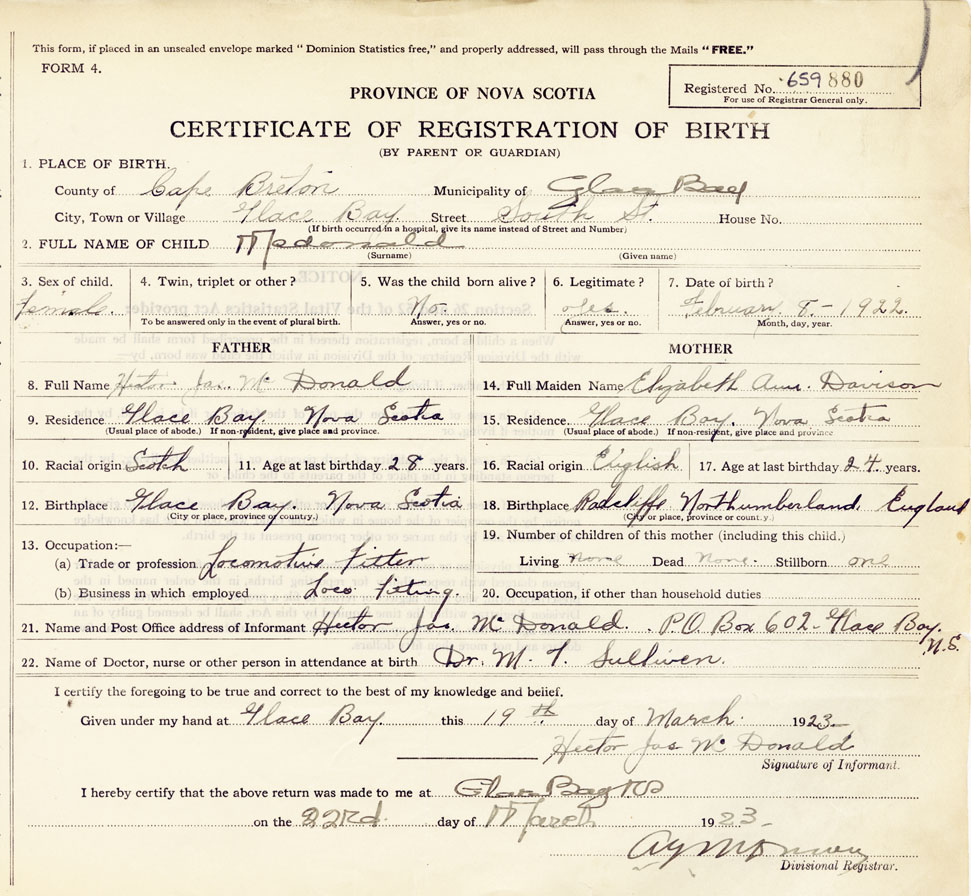 This form, if placed in an unsealed envelope marked "Dominion Statistics free," and properly addressed, will pass through the Mails "FREE."
FORM 4.
Registered No. 659880
For use of Registrar General only.
PROVINCE OF NOVA SCOTIA
CERTIFICATE OF REGISTRATION OF BIRTH
(BY PARENT OR GUARDIAN)
1. PLACE OF BIRTH.
County of Cape Breton Municipality of Glace Bay
City, Town or Village Glace Bay. Street South St. House No.
(If birth occurred in a hospital, give its name instead of Street and Number)
2. FULL NAME OF CHILD Mcdonald
(Surname) (Given name)
3. Sex of child. 4. Twin, triplet or other? 5. Was the child born alive? 6. Legitimate? 7. Date of birth?
female. No. yes. February 8 - 1922.
To be answered only in the event of plural birth. Answer, yes or no. Answer, yes or no. Month, day, year.
FATHER MOTHER
8. Full Name Hector Jas. Mc Donald 14. Full Maiden Name Elyzabeth Ann. Davison
9. Residence Glace Bay. Nova Scotia 15. Residence. Glace Bay. Nova Scotia
(Usual place of abode.) If non-resident, give place and province. (Usual place of abode.) If non-resident, give place and province
10. Racial origin Scotch 11. Age at last birthday 28 years. 16. Racial origin English 17. Age at last birthday 24 years.
12. Birthplace Glace Bay. Nova Scotia 18. Birthplace Radcliffe Northumberland, England
(City or place, province or country.) (City or place, province or country.)
13. Occupation:— 19. Number of children of this mother (including this child.)
(a) Trade or profession Locomotive Fitter Living none Dead None. Stillborn one
(b) Business in which employed Loco Fitting. 20. Occupation, if other than household duties
21. Name and Post Office address of Informant Hector Jas. Mc Donald. P.O. Box 602- Glace Bay. N.S.
22. Name of Doctor, nurse or other person in attendance at birth Dr. M. T. Sulliven.
I certify the foregoing to be true and correct to the best of my knowledge and belief.
Given under my hand at Glace Bay. this 19th day of March 1923
Hector Jas Mc Donald
Signature of Informant.
I hereby certify that the above return was made to me at Glace Bay NS
on the 22nd day of March 1923-
Divisional Registrar.